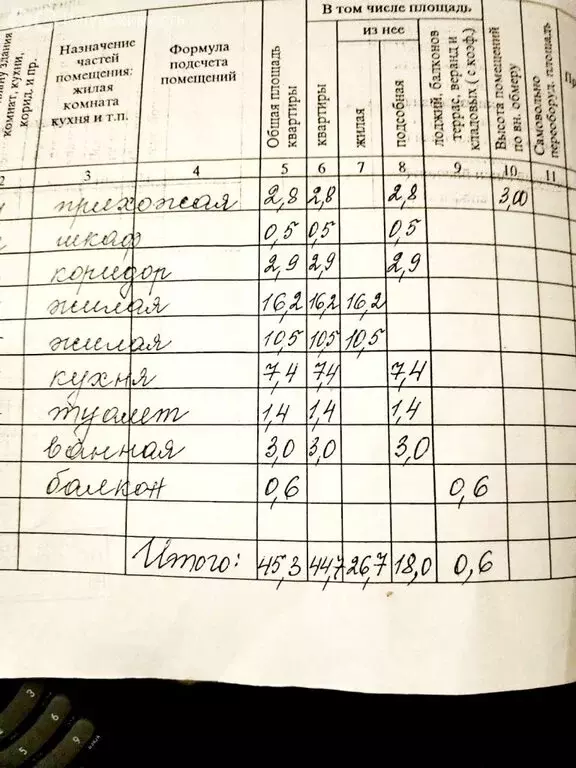 плану здания комнат, кухни, корид. и пр.
Назначение частей помещения: жилая комната кухня и т.п.
Формула подсчета помещений
Общая площадь квартиры
В том числе площадь
квартиры
из нее
жилая
подсобная
лоджий, балконов террас, веранд и кладовых ( с коэф.)
Высота помещений по вн. обмеру
Самовольно переоборуд. площадь
2 3 4 5 6 7 8 9 10 11
прихожая 2,8 2,8 2,8 3,00
шкаф 0,5 0,5 0,5
коридор 2,9 2,9 2,9
жилая 16,2 16,2 16,2
жилая 10,5 10,5 10,5
кухня 7,4 7,4 7,4
туалет 1,4 1,4 1,4
ванная 3,0 3,0 3,0
балкон 0,6 0,6
Итого: 45,3 44,7 26,7 18,0 0,6
3
6
5
9